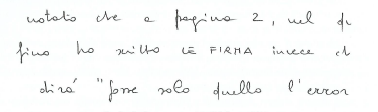 notato che a pagina 2, nel
fino ho scritto LE FIRMA invece
dirà "fosse solo quello l'error